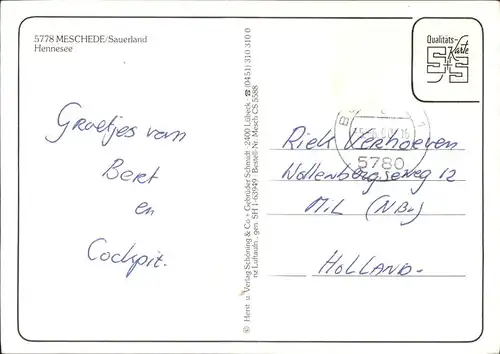 5778 MESCHEDE/Sauerland
Hennesee
Qualitäts-Karte
Groetjes van
Bert
en
Cockpit.
© Herst. u. Verlag Schöning & Co + Gebrüder Schmidt · 2400 Lübeck · ☎ (0451) 310 310 0
riz Luftaufn., gen. SH 1-63949 · Bestell-Nr. Mesch CS 5588
5780
Riek Verhoeven
12
Mill (NBr)
HOLLAND.